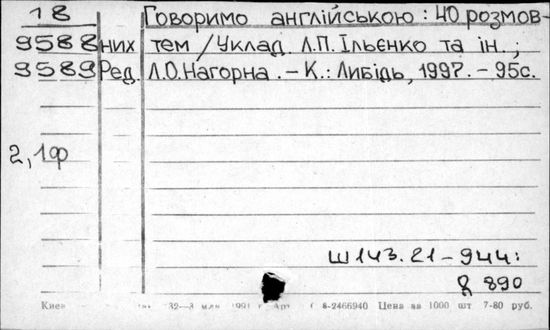 18 Говоримо англійською : 40 розмов-
9588 них тем / Уклад. Л.П. Ільєнко та ін. ;
9589 Ред. Л.О. Нагорна . – К.: Либідь, 1997. – 95с.
2,1ф
Ш143.21-944:
Я 890
Киев 8-2466940 Цена за 1000 шт. 7-80 руб.